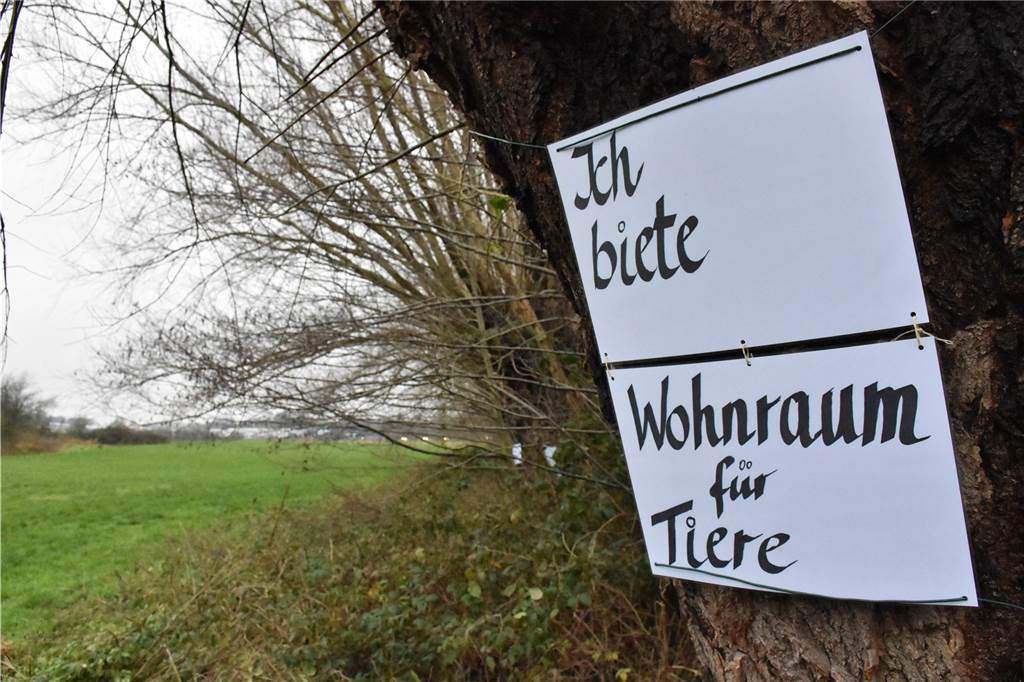 Ich
biete
Wohnraum
für
Tiere